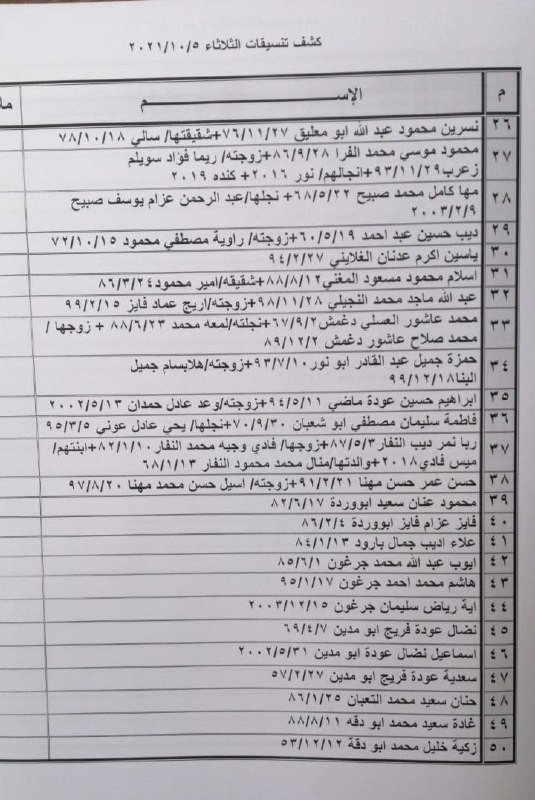 كشف تنسيقات الثلاثاء ٢٠٢١/١٠/٥
م الإســـــــم
٢٦ نسرين محمود عبد الله ابو معليق ٧٦/١١/٢٧+شقيقتها/ سالي ٧٨/١٠/١٨
٢٧ محمود موسي محمد الفرا ٨٦/٩/٢٨+زوجته/ ريما فؤاد سويلم
زعرب ٩٣/١١/٢٩+انجالهم/ نور ٢٠١٦+ كنده ٢٠١٩
٢٨ مها كامل محمد صبيح ٦٨/٥/٢٢+ نجلها/عبد الرحمن عزام يوسف صبيح
٢٠٠٣/٢/٩
٢٩ ديب حسين عبد احمد ٦٠/٥/١٩+زوجته/ راوية مصطفي محمود ٧٢/١٠/١٥
٣٠ ياسين اكرم عدنان الغلاييني ٩٤/٢/٢٧
٣١ اسلام محمود مسعود المغني ٨٨/٨/١٢+شقيقه/امير محمود ٨٦/٣/٢٤
٣٢ عبد الله ماجد محمد النجيلي ٩٨/١١/٢٨+زوجته/اريج عماد فايز ٩٩/٢/١٥
٣٣ محمد عاشور العسلي دغمش ٦٧/٩/٢+نجلته/لمعه محمد ٨٨/٦/٢٣ + زوجها /
محمد صلاح عاشور دغمش ٨٩/١٢/٢
٣٤ حمزة جميل عبد القادر ابو نور ٩٣/٧/١٠+زوجته/هلابسام جميل
البنا ٩٩/١٢/١٨
٣٥ ابراهيم حسين عودة ماضي ٩٤/٥/١١+زوجته/وعد عادل حمدان ٢٠٠٢/٥/١٣
٣٦ فاطمة سليمان مصطفي ابو شعبان ٧٠/٩/٣٠+نجلها/ يحي عادل عوني ٩٥/٣/٥
٣٧ ربا نمر ديب النفار ٨٧/٥/٣+زوجها/ فادي وجيه محمد النفار ٨٢/١/١٠+ابنتهم/
ميس فادي ٢٠١٨+والدتها/منال محمد محمود النفار ٦٨/١/١٣
٣٨ حسن عمر حسن مهنا ٩١/٢/٢١+زوجته/ اسيل حسن محمد مهنا ٩٧/٨/٢٠
٣٩ محمود عنان سعيد ابووردة ٨٢/٦/١٧
٤٠ فايز عزام فايز ابووردة ٨٦/٢/٤
٤١ علاء اديب جمال بارود ٨٤/١/١٣
٤٢ ايوب عبد الله محمد جرغون ٨٥/٦/١
٤٣ هاشم محمد احمد جرغون ٩٥/١/١٧
٤٤ اية رياض سليمان جرغون ٢٠٠٣/١٢/١٥
٤٥ نضال عودة فريج ابو مدين ٦٩/٤/٧
٤٦ اسماعيل نضال عودة ابو مدين ٢٠٠٢/٥/٣١
٤٧ سعدية عودة فريج ابو مدين ٥٧/٢/٢٧
٤٨ حنان سعيد محمد التعبان ٨٦/١/٢٥
٤٩ غادة سعيد محمد ابو دقه ٨٨/٨/١١
٥٠ زكية خليل محمد ابو دقة ٥٣/١٢/١٢